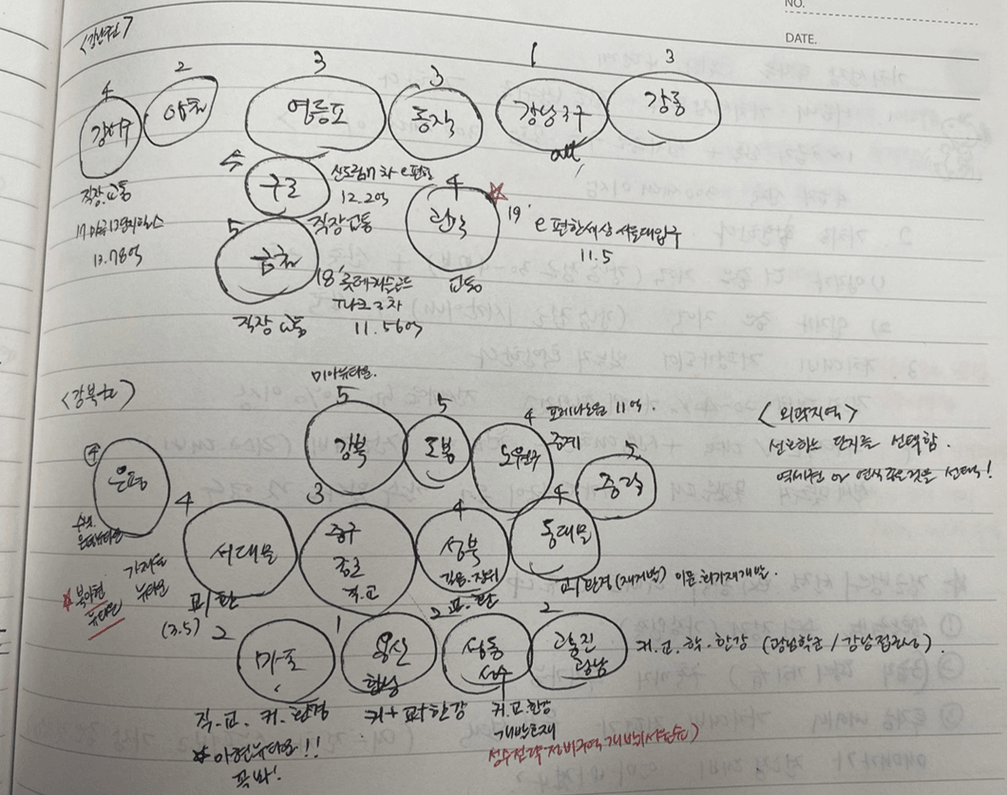 NO.
DATE.
<강남권>
4
강서구
2
양천
3
영등포
3
동작
1
강남3구
all
3
강동
직장.교통
13.78억
4
구로
신도림7차 e편한
12.2억
직장교통
5
금천
직장 교통
18' 롯데캐슬골드
파크 3차
11.56억
4
관악
교통
19'
e편한세상 서울대입구
11.5
<강북권>
미아뉴타운.
5
강북
5
도봉
4
노원구
포레나노원 11억.
중계
5
중랑
<외곽지역>
선호하는 단지를 선택함.
역세권 or 연식 좋은것을 선택!
4
은평
수색.
은평뉴타운
4
서대문
가재울
뉴타운
북아현
뉴타운
교|환
(3.5)
3
중구
종로
직.교
4
성북
길음.장위
교.환
4
동대문
교|환경(재개발) 이문.휘경재개발.
2
마포
직.교.커.환경
아현뉴타운!!
꼭봐!
1
용산
커+교+한강
2
성동
성수
커.교.한강
개발호재
성수전략정비구역 개발
2
광진
광남
커.교.학.한강 (광남학군/강남접근성).